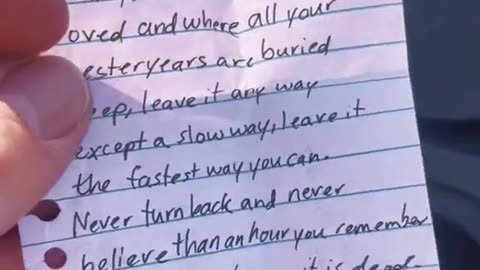 oved and where all your
esteryears are buried
eep, leave it any way
except a slow way, leave it
the fastest way you can.
Never turn back and never
believe than an hour you remember
it is dead